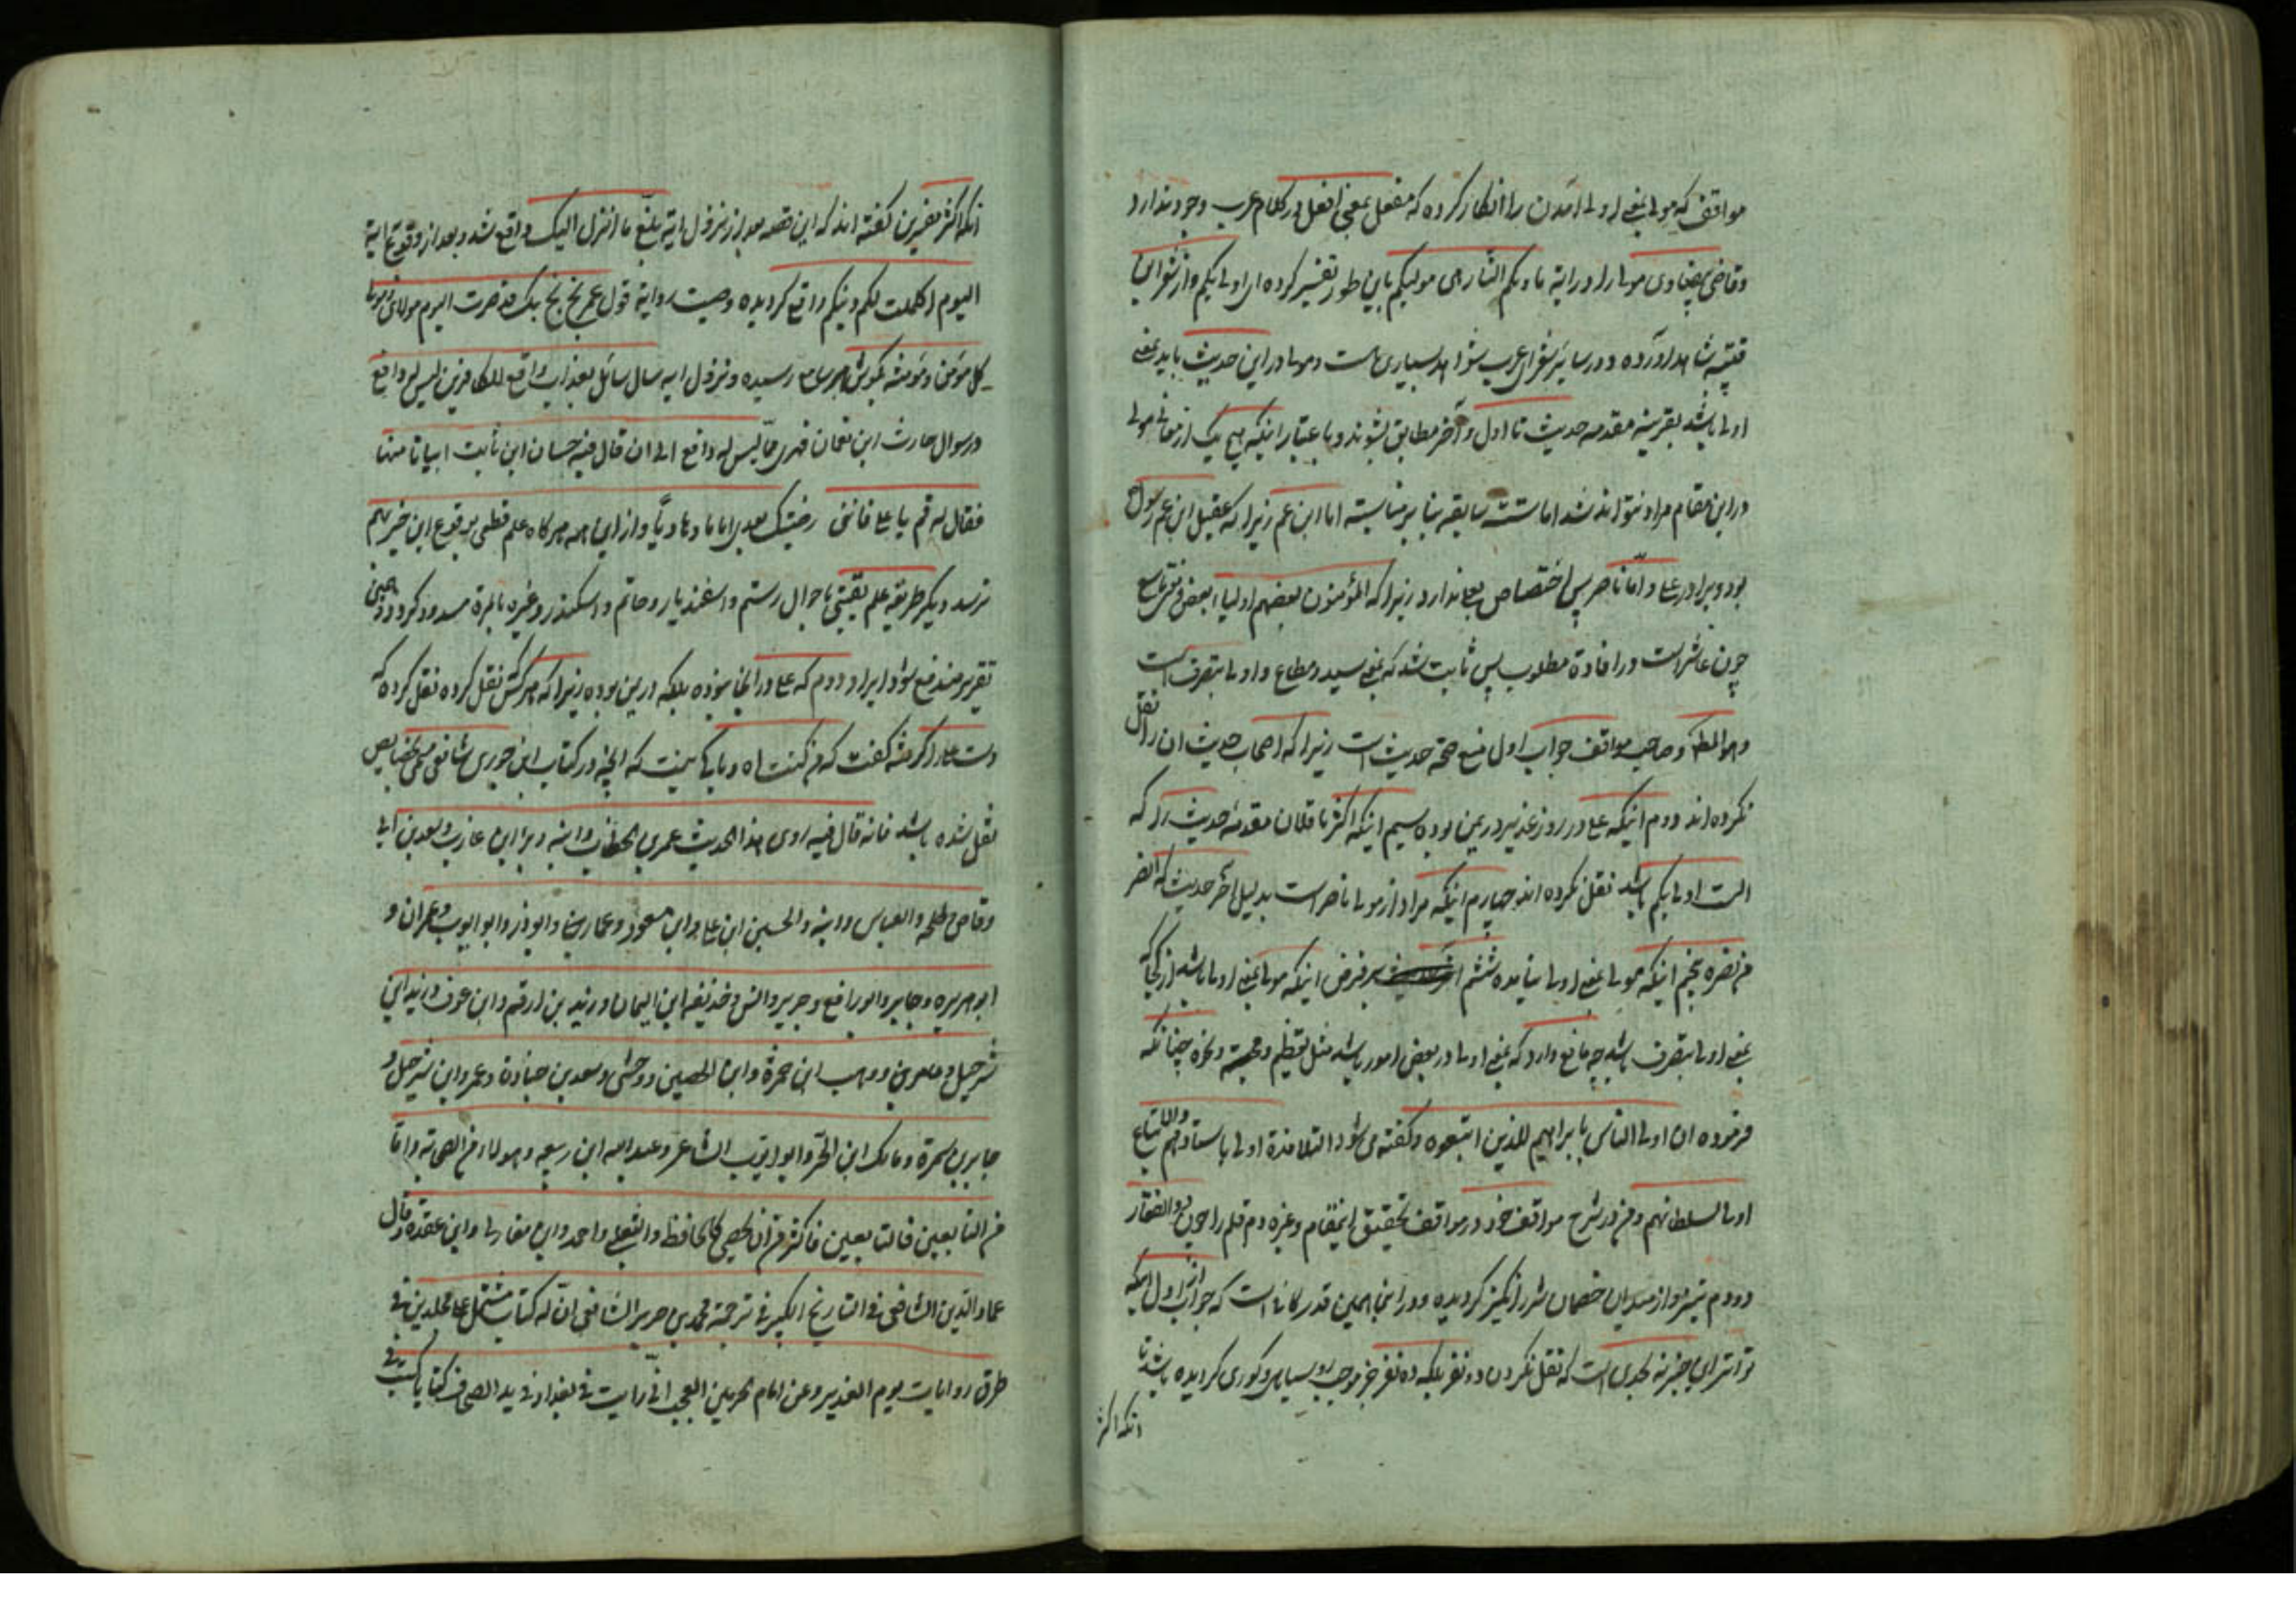 مواقف که مولی بمعنی اولی آمدن را انکار کرده که مفعل بمعنی افعل در کلام عرب وجود ندارد
وقاضی بیضاوی مولی را در ایة ماویکم النار هی مولیکم باین طور تفسیر کرده ای اولی بکم و از شعرای
شاهد آورده و در سایر شعرای عرب شواهد بسیاری هست و مولی در این حدیث باید بمعنی
اولی باشد بقرینه مقدمه حدیث تا اول و آخر مطابق بشوند و باعتبار اینکه هیچ یک از معانی مولی
در این مقام مراد نتواند شد اما ستته سابقه بنا بر مناسبته اما ابن عم زیرا که عقیل ابن عم رسول
بود و برادر علی و امّا ناصر پس اختصاص بعلی ندارد زیرا که المؤمنون بعضهم اولیاء بعض
چون عاشر است در افادۀ مطلوب پس ثابت شد که بمعنی سید و مطاع و اولی بتصرف است
وهو المط و صاحب مواقف جواب اول منع صحة حدیث است زیرا که اصحاب حدیث ان را نقل
نکرده اند دوم اینکه علی در روز غدیر در یمن بوده سیم اینکه اکثر ناقلان مقدمه حدیث را که
الست اولی بکم باشد نقل نکرده اند چهارم اینکه مراد از مولی ناصر است بدلیل آخر حدیث که انصر
من نصره پنجم اینکه مولی بمعنی اولی نیامده ششم بر فرض اینکه مولی بمعنی اولی باشد از کجا که
بمعنی اولی بتصرف باشد چه مانع دارد که بمعنی اولی در بعض امور باشد مثل تعظیم و محبت و غیره چنانکه
فرموده ان اولی الناس بابراهیم للذین اتبعوه و گفته می شود التلامذة اولی باستادهم والاتباع
اولی بسلطانهم و من در شرح مواقف خود در مواقف تحقیق اینمقام و غیره دم قلم را چون ذو الفقار
دو دم نموده از میدان خصمان شرر انگیز گردیده و در اینجا همین قدر کافی است که جواب از اول اینکه
تواتر این خبر نه بحدی است که نقل نکردن دو نفر بلکه ده نفر موجب رو سیاهی و کوری گردیده باشد تا
انکه اکثر
انکه اکثر مفسرین گفته اند که این قصه بعد از نزول ایة بلّغ ما انزل الیک واقع شد و بعد از وقوع ایة
الیوم اکملت لکم دینکم واقع گردیده وصیت روایة قول عمر بخ بخ بک قد صرت الیوم مولای و مولی
کل مؤمن و مؤمنة بگوش هر سامع رسیده و نزول ایه سال سائل بعذاب واقع للکافرین لیس له دافع
در سوال حارث ابن نعمان فهری ممّا لیس له دافع الی ان قال فیه حسان ابن ثابت ابیاتا منها
فقال له قم یا علی فاننی رضیتک بعدی اماما و هادیاً و از این همه هرگاه علم قطعی بوقوع این خبر بهم
نرسد دیگر طریقه علم یقینی باحوال رستم و اسفندیار و حاتم و اسکندر و غیره بالمرة مسدود گردد و همین
تقریر مندفع شود ایراد دوم که علی در انجا نبوده بلکه در یمن بوده زیرا که هر کس نقل کرده نقل کرده که
دست علی را گرفته گفت که من کنت اه و باکی نیست که انچه در کتاب ابن جوزی شافعی مسمی بخصایص
نقل شده باشد فانه قال فیه روی هذا الحدیث عمر بن الخطاب وابنه وبراء ابن عازب وسعد بن ابی
وقاص وطلحه والعباس وابنه والحسین ابن علی وابن مسعود وعمار وابوذر وابو ایوب وعمران و
ابو هریره وجابر وابو رافع وجریر وانس وحذیفه ابن الیمان وزید بن ارقم وابن عوف وزید ابن
شرحبیل وعامر ووهب ابن حمزة وابن الحصین ووحشی وسعد بن جنادة وعمرو ابن شرحبیل و
جابر بن سمرة ومالک ابن الحر وابو ذویب الشاعر وعبد الله ابن ربیعه وهولاء من الصحابة واما
من التابعین فالتابعین فاکثر من ان یحصی کالحافظ والثعلبی واحمد وابن مغازلی وابن عقده وقال
عماد الدین الشافعی فی التاریخ الکبیر فی ترجمة محمد بن جریر الشافعی انّ له کتاب مشتمل علی مجلدین فی
طرق روایات یوم الغدیر وعن امام الحرمین العجب انّی رایت فی بغداد فی ید الصحاف کتابا کتب فی